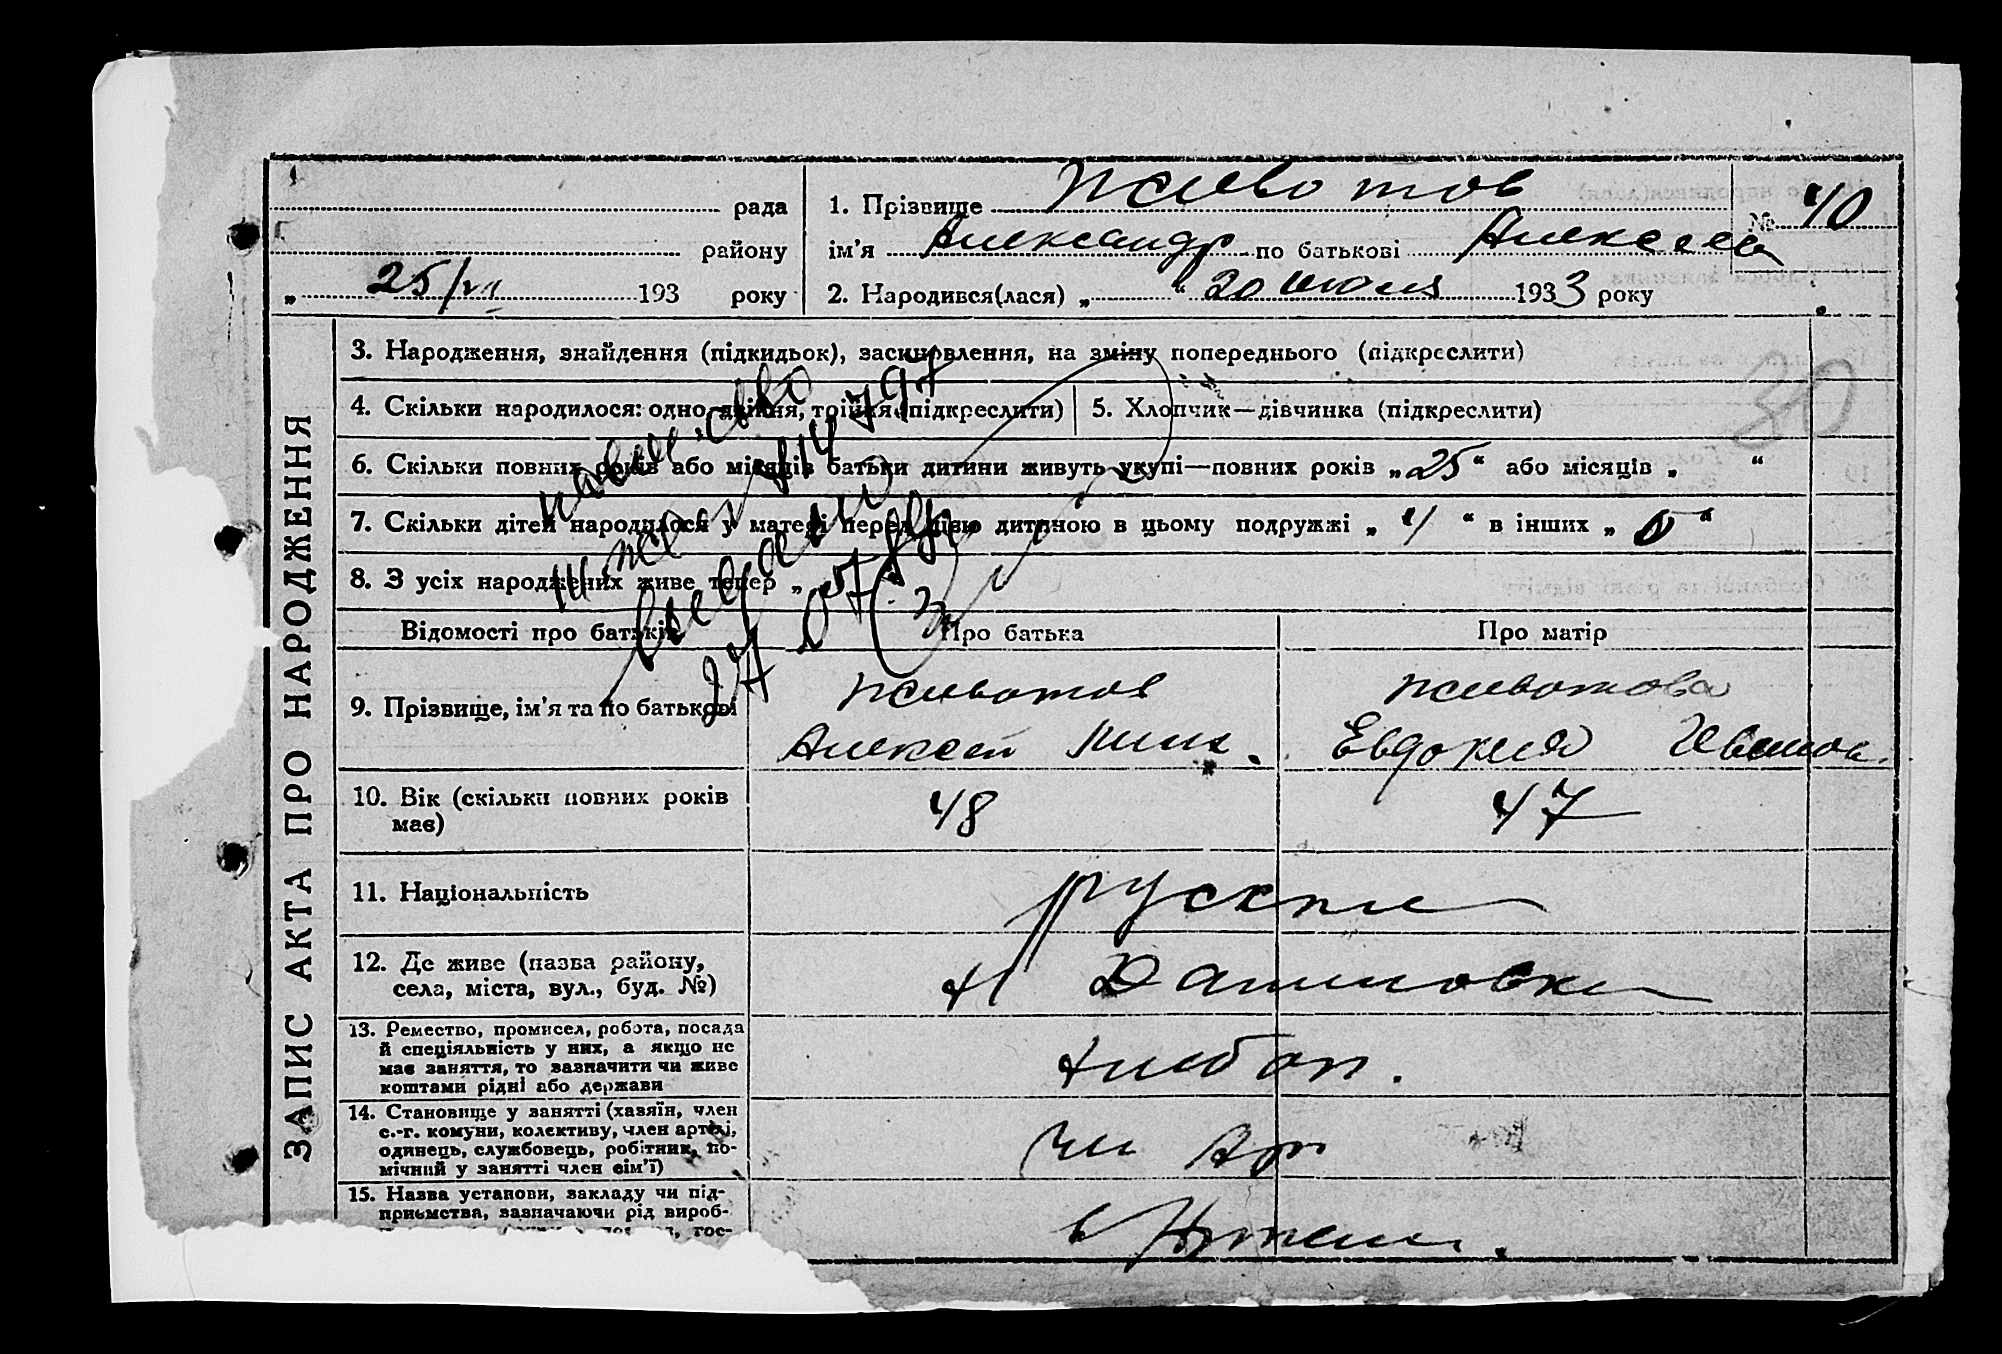 рада
району
„ 25/VII 193 року
1. Прізвище Животов
№ 40
ім'я Александр по батькові Алексеев
2. Народився(лася) „ “ 20 июля 1933 року
ЗАПИС АКТА ПРО НАРОДЖЕННЯ
3. Народження, знайдення (підкидьок), засиновлення, на зміну попереднього (підкреслити)
30
4. Скільки народилося: одно, двійня, трійня (підкреслити)
5. Хлопчик—дівчинка (підкреслити)
6. Скільки повних років або місяців батьки дитини живуть укупі—повних років „ 25 “ або місяців „ “
7. Скільки дітей народилося у матері перед цією дитиною в цьому подружжі „ 4 “ в інших „ 0 “
8. З усіх народжених живе тепер „
Відомості про батьків
Про батька
Про матір
9. Прізвище, ім'я та по батькові
Животов
Алексей
Животова
Евдокия Иванов.
10. Вік (скільки повних років
має)
48
47
11. Національність
руские
12. Де живе (назва району,
села, міста, вул., буд. №)
Н Даниловка
13. Ремество, промисел, робота, посада
й спеціяльність у них, а якщо не
має заняття, то зазначити чи живе
коштами рідні або держави
хлебоп.
14. Становище у занятті (хазяїн, член
с.-г. комуни, колективу, член артелі,
одинець, службовець, робітник, по-
мічний у занятті член сім'ї)
чл Арт
15. Назва установи, закладу чи під-
приємства, зазначаючи рід вироб-
гос-
в Артели.